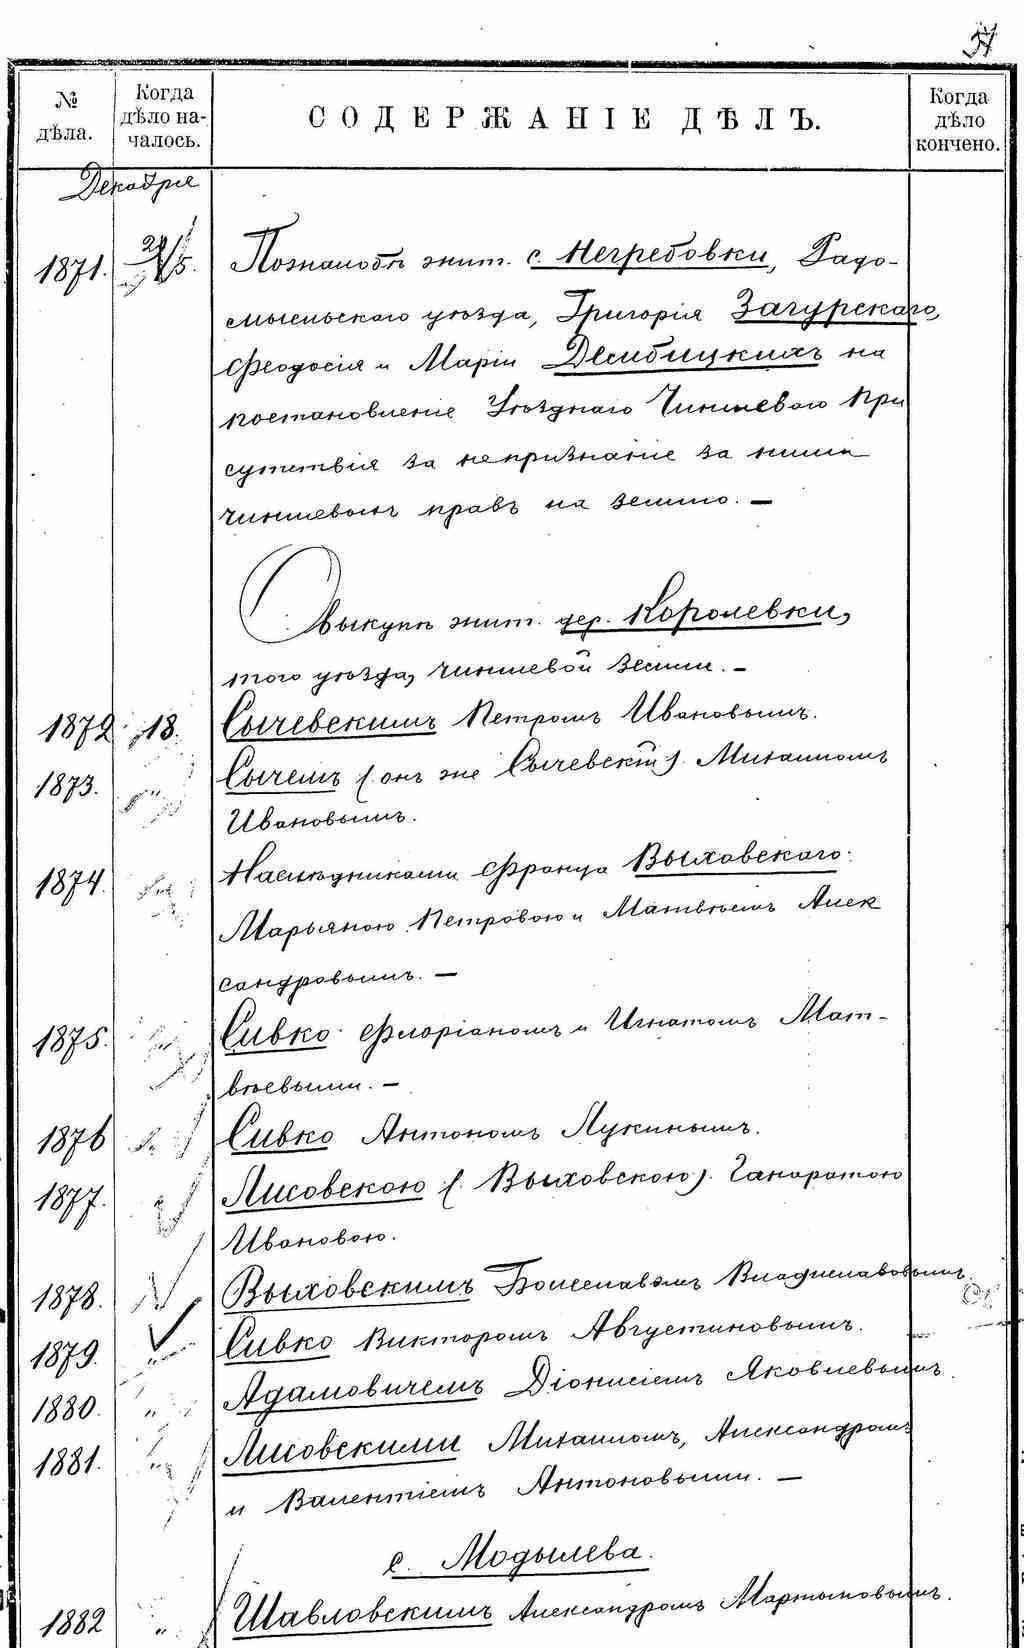 57
№ дѣла.
Когда дѣло на-
чалось.
СОДЕРЖАНІЕ ДѢЛЪ.
Когда дѣло кончено.
Декабря
1871. По жалобѣ жит. с. Негребовки, Радо-
мысльскаго уѣзда, Григорія Загурскаго,
Феодосія и Маріи на
постановленіе Уѣзднаго Чиншевого При
сутствія за непризнаніе за ними
чиншевыхъ правъ на землю. —
О выкупѣ жит. дер. Королевки,
того уѣзда, чиншевой земли. —
1872 18. Сычевскимъ Петромъ Ивановымъ.
1873. " Сычемъ (онъ же Сычевскій). Михаиломъ
Ивановымъ.
1874. Наслѣдниками Франца Выховскаго:
Марьяною Петровою и Матвѣемъ Алек
сандровымъ. —
1875. Сивко Флоріаномъ и Игнатомъ Мат-
вѣевыми. —
1876 Сивко Антономъ Лукинымъ.
1877. Лисовскою (Выховскою). Ганоратою
Ивановою.
1878. Выховскимъ Болеславомъ Владиславовымъ
1879. " Сивко Викторомъ Августиновымъ.
1880. " Адамовичемъ Діонисіемъ Яковлевымъ.
1881. " Лисовскими Михаиломъ, Александромъ
и Валентіемъ Антоновыми. —
с. Модылева.
1882 " Шавловскимъ Александромъ Мартыновымъ.